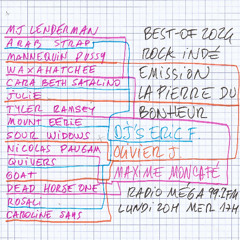 MJ LENDERMAN
ARAB STRAP
MANNEQUIN PUSSY
WAXAHATCHEE
CARA BETH SATALINO
JULIE
TYLER RAMSEY
MOUNT EERIE
SOUR WIDOWS
NICOLAS PAUGAM
QUIVERS
GOAT
DEAD HORSE ONE
ROSALI
CAROLINE SAYS
BEST-OF 2024
ROCK INDÉ
EMISSION
LA PIERRE DU
BONHEUR
DJ'S ERIC F.
OLIVIER J.
MAXIME MONCATÉ
RADIO MÉGA 99.2FM
LUNDI 20H MER 17H